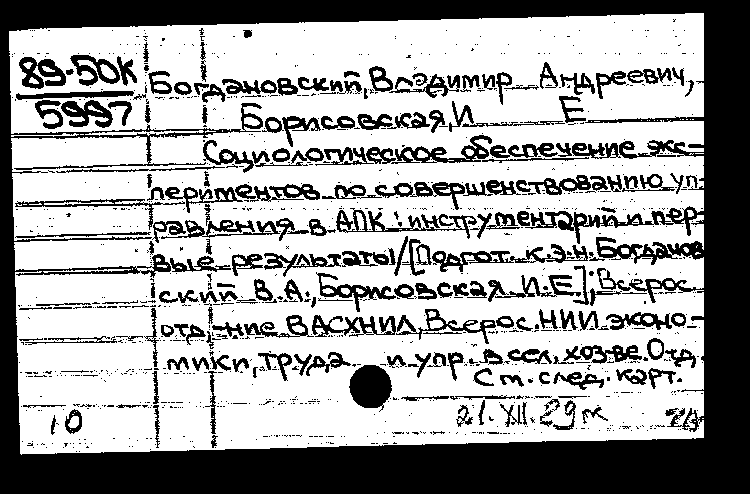 89-50К
5997
Богдановский, Владимир Андреевич,
Борисовская, И Е
Социологическое обеспечение экс-
периментов по совершенствованию уп-
равления в АПК: инструментарий и пер-
вые результаты/[Подгот. к.э.н. Богданов
ский В.А., Борисовская И.Е]; Всерос.
отд,-ние ВАСХНИЛ, Всерос. НИИ эконо-
мики, труда и упр. в сел. хоз-ве. Отд.
См. след. карт.
10 21. XII. 89